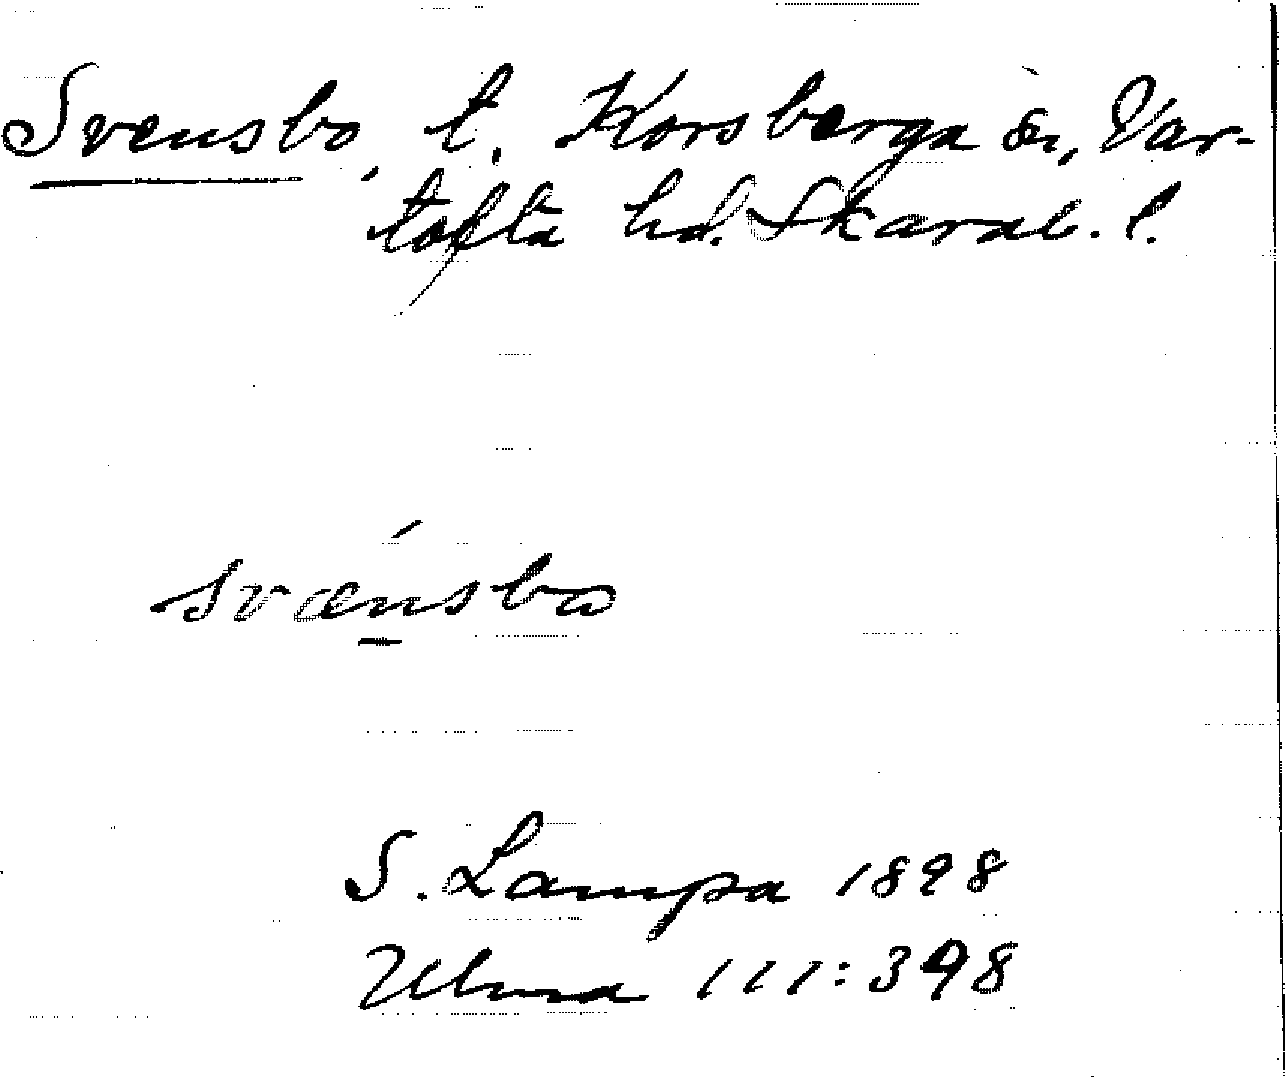 Svensbo, t. Korsberga sn, Var-
tofta hd. Skarab. l.
svænsbo
S. Lampa 1898
Ulma 111:398